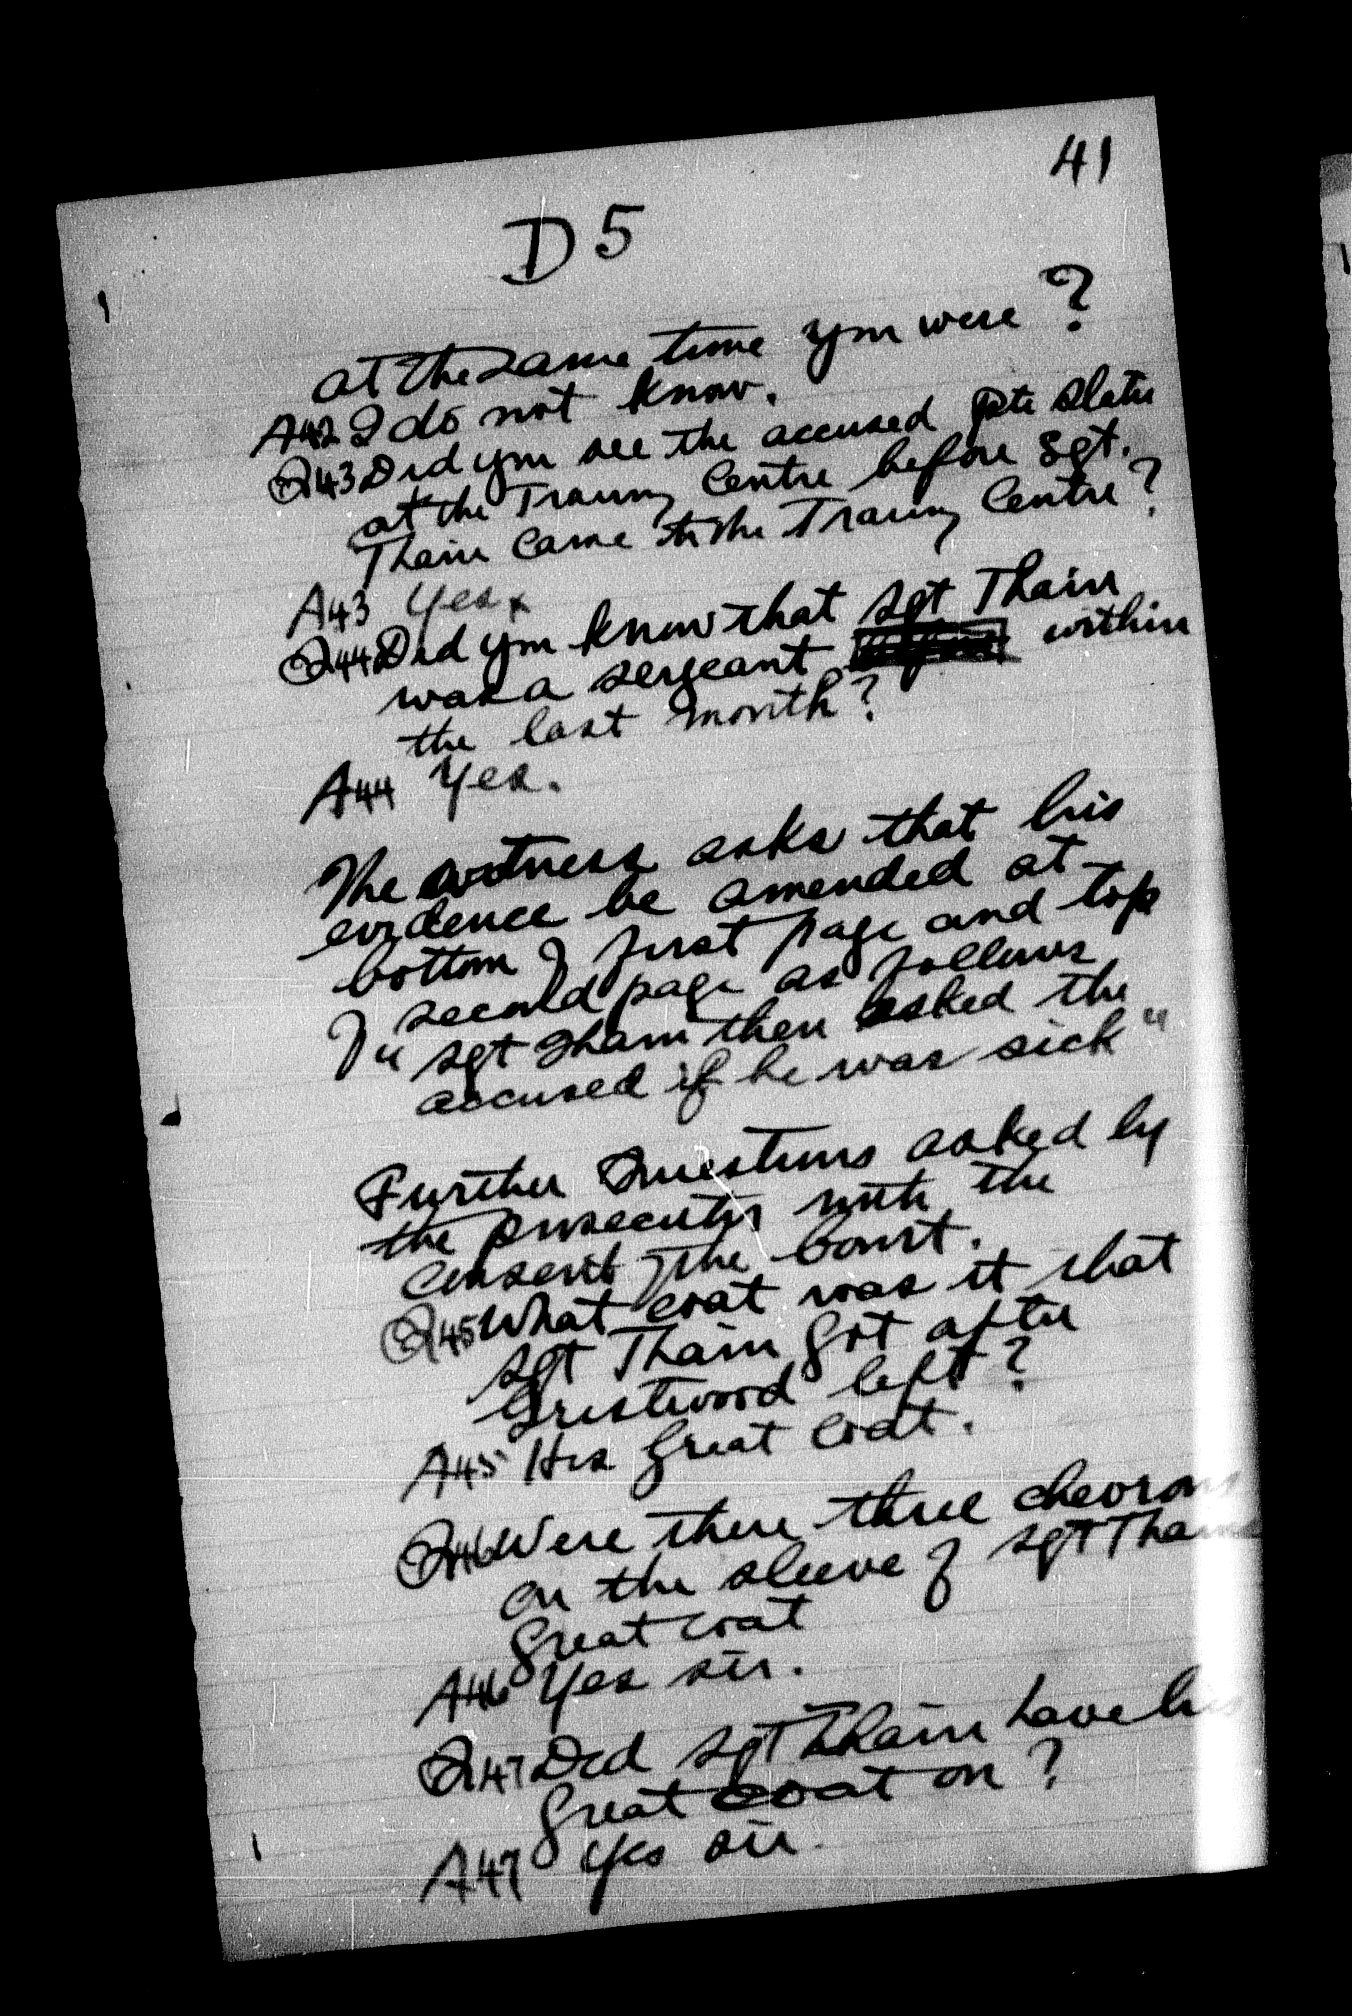 41
D5
at the same time you were?
A42 I do not know.
Q43 Did you see the accused Pte Slater
at the Training Centre before Sgt.
Thain came to the Training Centre?
A43 Yes.
Q44 Did you know that Sgt Thain
was a sergeant within
the last month?
A44 Yes.
The witness asks that his
evidence be amended at
bottom of first page and top
of second page as follows
"Sgt Thain then asked the
accused if he was sick"
Further Questions asked by
the prosecutor with the
consent of the Court.
Q45 What coat was it that
Sgt Thain got after
Gristwood left?
A45 His Great Coat.
Q46 Were there three chevrons
on the sleeve of Sgt Thains
Great coat
A46 Yes sir.
Q47 Did Sgt Thain have his
Great coat on?
A47 Yes sir.